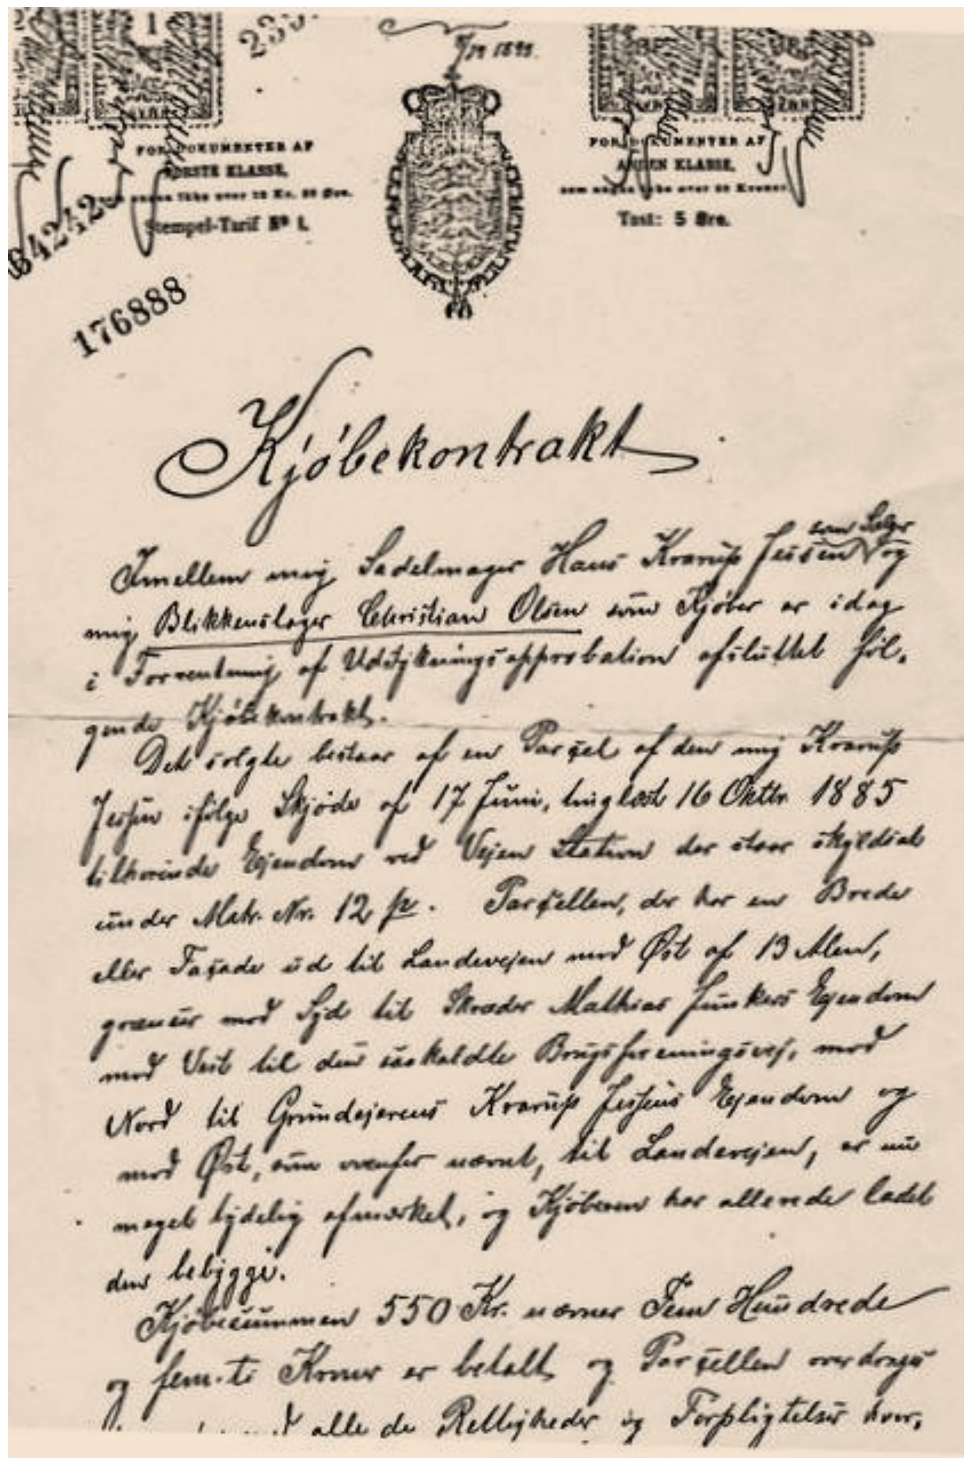 FOR DOKUMENTER AF
FØRSTE KLASSE,
ikke over 12 Kr. 50 Øre.
Stempel-Tarif Nº 1.
64242
176888
1899.
FOR DOKUMENTER AF
ANDEN KLASSE,
som angaa ikke over 50 Kroner
Taxt: 5 Øre.
Kjøbekontrakt
som Sælger
Imellem mig Sadelmager Hans Krarup Jessen og
mig Blikkenslager Christian Olsen som Kjøber er idag
i Forventning af Udstykningsapprobation afsluttet føl-
gende Kjøbekontrakt.
Det solgte bestaar af en Parçel af den mig Krarup
Jessen ifølge Skjøde af 17 Juni, tinglæst 16 Oktbr. 1885
tilhørende Ejendom ved Vejen Station der staar skyldsat
under Matr. Nr. 12 p. Parçellen, der har en Brede
eller Façade ud til Landevejen mod Øst af 13 Alen,
grænser mod Syd til Skræder Mathias Junkers Ejendom
mod Vest til den saakaldte Brugsforeningsvej, mod
Nord til Grundejerens Krarup Jessens Ejendom og
mod Øst, som ovenfor nævnt, til Landevejen, er nu
meget tydelig afmærket, og Kjøberen har allerede ladet
den bebygge.
Kjøbesummen 550 Kr. nævner Fem Hundrede
og femti Kroner er betalt og Parçellen overdrages
alle de Rettigheder og Forpligtelser hvor-